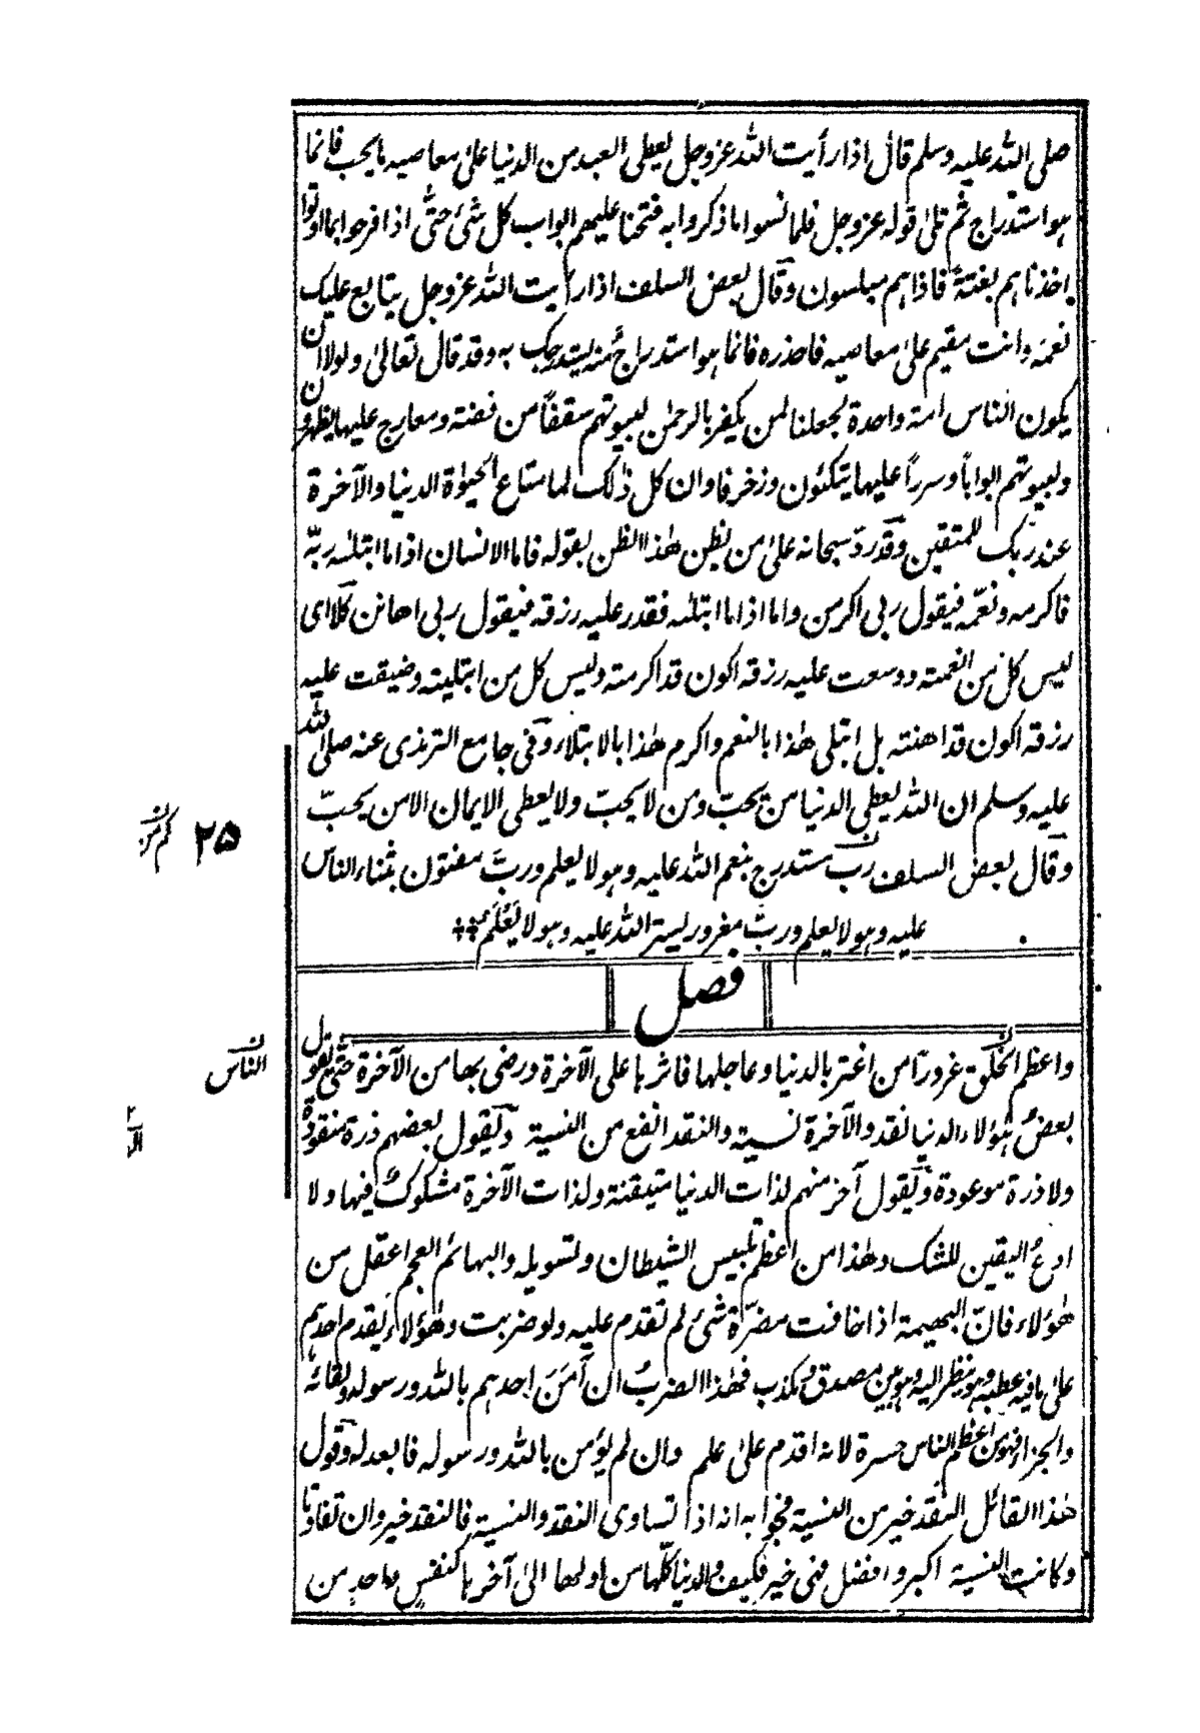 صلى الله عليه وسلم قال اذا رأيت الله عز وجل يعطى العبد من الدنيا على معاصيه ما يحب فانما
هو استدراج ثم تلى قوله عز وجل فلما نسوا ما ذكروا به فتحنا عليهم ابواب كل شئ حتى اذا فرحوا بما اوتوا
اخذناهم بغتة فاذا هم مبلسون وقال بعض السلف اذا رأيت الله عز وجل يتابع عليك
نعمه وانت مقيم على معاصيه فاحذره فانما هو استدراج منه يستدرجك به وقد قال تعالى ولولا ان
يكون الناس امة واحدة لجعلنا لمن يكفر بالرحمن لبيوتهم سقفاً من فضة ومعارج عليها يظهرون
ولبيوتهم ابواباً وسرراً عليها يتكئون وزخرفا وان كل ذلك لما متاع الحيوة الدنيا والآخرة
عند ربك للمتقين وقد ردّ سبحانه على من يظن هذا الظن بقوله فاما الانسان اذا ما ابتلىه ربّه
فاكرمه ونعّمه فيقول ربى اكرمن واما اذا ما ابتلىه فقدر عليه رزقه فيقول ربى اهانن كلّا اى
ليس كل من نعمته ووسعت عليه رزقه اكون قد اكرمته وليس كل من ابتليته وضيقت عليه
رزقه اكون قد اهنته بل ابتلى هذا بالنعم واكرم هذا بالابتلاء وفى جامع الترمذى عنه صلى الله
عليه وسلم ان الله يعطى الدنيا من يحبّ ومن لا يحبّ ولا يعطى الايمان الا من يحبّ
٢٥
وقال بعض السلف ربّ مستدرج بنعم الله عليه وهو لا يعلم وربّ مفتون بثناء الناس
عليه وهو لا يعلم وربّ مغرور بستر الله عليه وهو لا يَعْلَم
فصل
واعظم الخلق غروراً من اغتر بالدنيا وعاجلها فاثرها على الآخرة ورضى بها من الآخرة حتى يقول
الناس
بعض هؤلاء الدنيا نقد والآخرة نسية والنقد انفع من النسية ويقول بعضهم ذرة منقودة
ولا ذرة موعودة ويقول آخر منهم لذات الدنيا متيقنة ولذات الآخرة مشكوك فيها ولا
ادع اليقين للشك وهذا من اعظم تلبيس الشيطان وتسويله والبهائم العجم اعقل من
هؤلاء فانّ البهيمة اذا خافت مضرّة شئ لم تقدم عليه ولو ضربت وهؤلاء يقدم احدهم
على ما فيه عطبه وهو ينظر اليه وهو بين مصدق ومكذب فهذا الضرب ان آمَنَ احدهم بالله ورسوله ولقائه
والجزاء فهو من اعظم الناس حسرة لانه اقدم على علم وان لم يؤمن بالله ورسوله فابعد له وقول
هذا القائل النقد خير من النسية فجوابه انه اذا تساوى النقد والنسية فالنقد خير وان تفاوتا
وكانت النسية اكبر وافضل فهى خير فكيف والدنيا كلّها من اولها الى آخرها كنفس واحد من